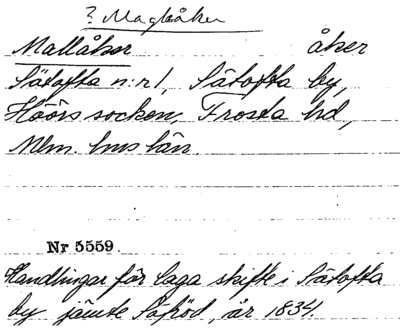 ? Maglåker
Mallåker åker
Sätofta n:r 1, Sätofta by,
Höörs socken, Frosta hd,
Mlm. hus län.
Nr 5559.
Handlingar för laga skifte i Sätofta
by jämte Säröd, år 1834.